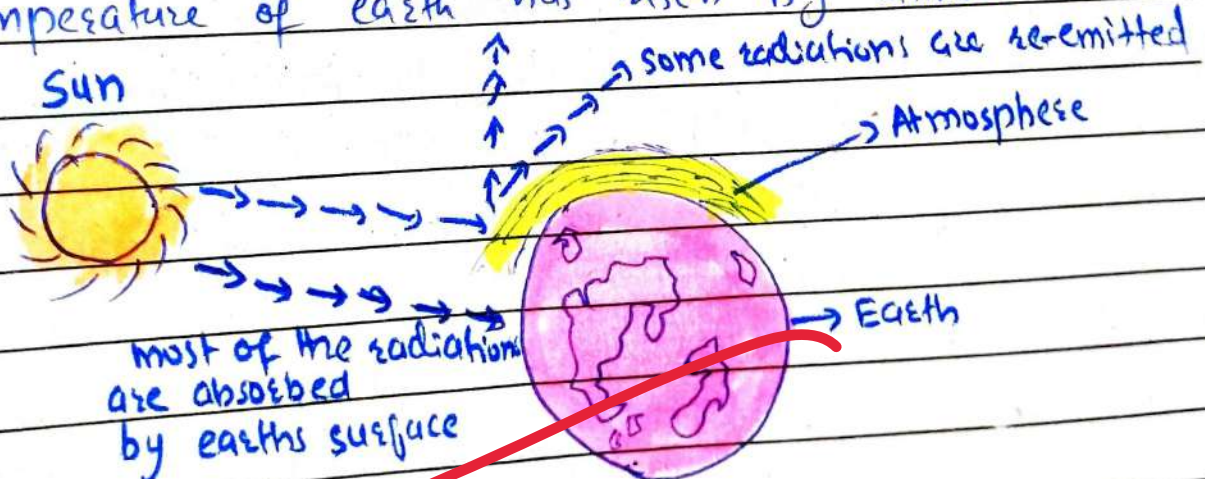 temperature of earth has risen by
Sun
some radiations are re-emitted
Atmosphere
Earth
most of the radiations
are absorbed
by earths surface